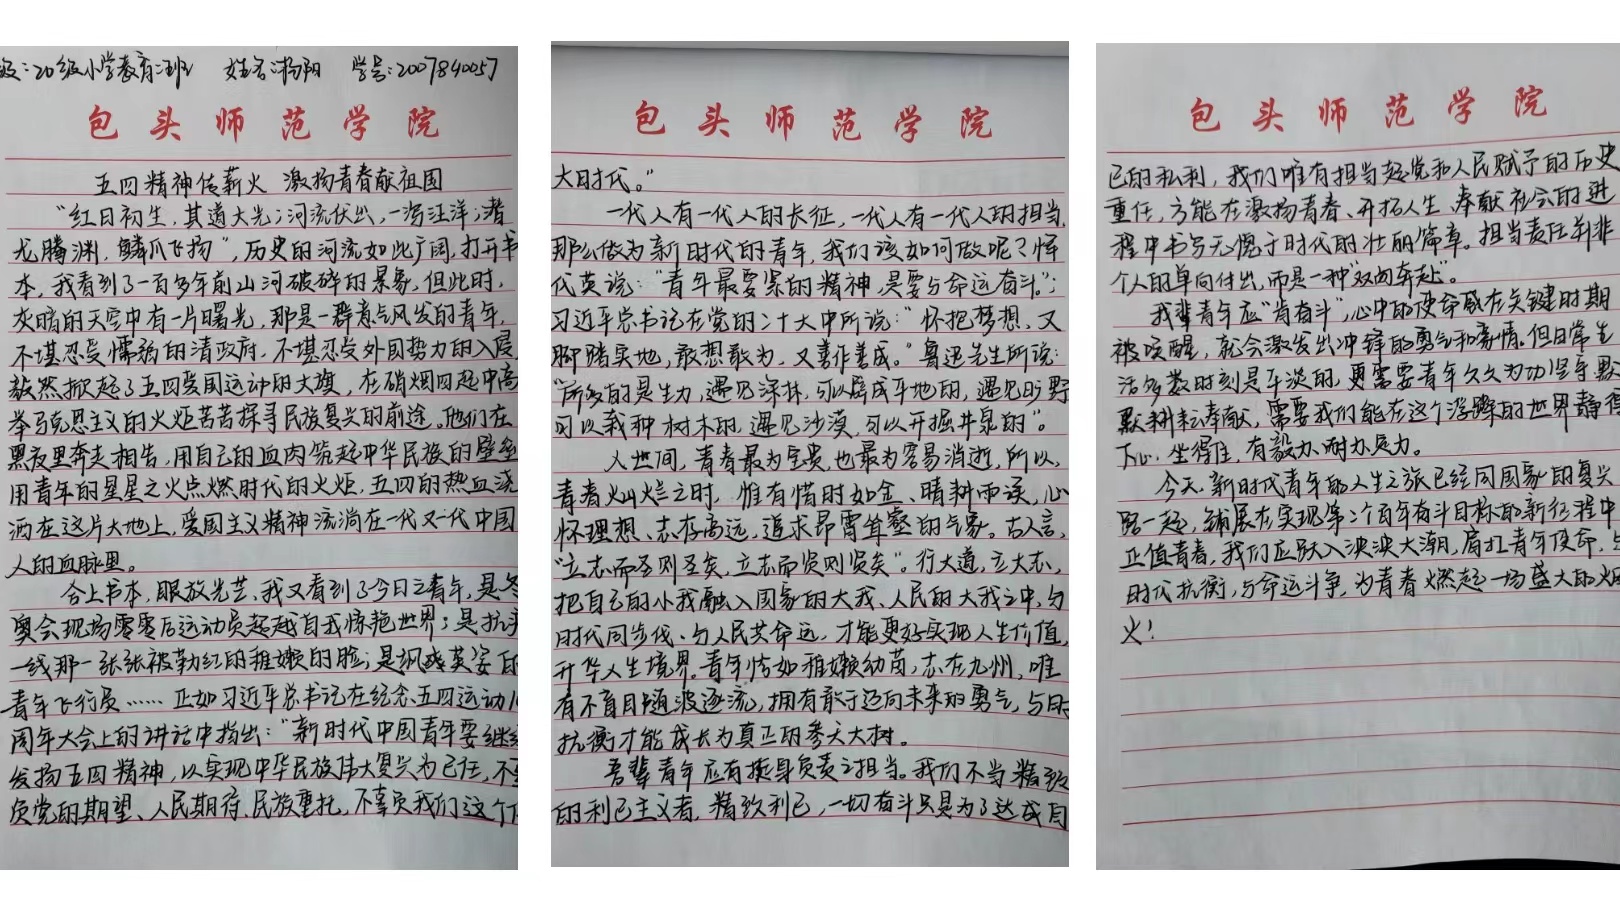 级:20级小学教育二班 姓名:杨阳 学号:2007840057
包头师范学院
五四精神传薪火 激扬青春献祖国
“红日初生,其道大光;河流伏出,一泻汪洋;潜
龙腾渊,鳞爪飞扬”,历史的河流如此广阔,打开书
本,我看到了一百多年前山河破碎的景象,但此时,
灰暗的天空中有一片曙光,那是一群意气风发的青年,
不堪忍受懦弱的清政府,不堪忍受外国势力的入侵
毅然掀起了五四爱国运动的大旗,在硝烟四起中高
举马克思主义的火炬苦苦探寻民族复兴的前途。他们在
黑夜里奔走相告,用自己的血肉筑起中华民族的壁垒
用青年的星星之火点燃时代的火炬,五四的热血浇
洒在这片大地上,爱国主义精神流淌在一代又一代中国
人的血脉里。
合上书本,眼放光芒,我又看到了今日之青年,是冬
奥会现场零零后运动员起越自我惊艳世界;是抗疫
一线那一张张被勒红的稚嫩的脸;是飒爽英姿的
青年飞行员……正如习近平总书记在纪念五四运动1
周年大会上的讲话中指出:“新时代中国青年要继续
发扬五四精神,以实现中华民族伟大复兴为己任,不辜
负党的期望、人民期待、民族重托,不辜负我们这个
包头师范学院
大时代。”
一代人有一代人的长征,一代人有一代人的担当,
那么做为新时代的青年,我们该如何做呢?恽
代英说:“青年最要紧的精神,是要与命运奋斗。”;
习近平总书记在党的二十大中所说:“怀抱梦想,又
脚踏实地,敢想敢为,又善作善成。”鲁迅先生所说:
“所多的是生力,遇见深林,可以辟成平地的,遇见旷野
可以栽种树木的,遇见沙漠,可以开掘井泉的”。
人世间,青春最为宝贵,也最为容易消逝,所以,
青春灿烂之时,惟有惜时如金、晴耕雨读,心
怀理想、志存高远,追求昂霄耸壑的气象。古人言,
“立志而圣则圣矣,立志而贤则贤矣”。行大道,立大志,
把自己的小我融入国家的大我、人民的大我之中,与
时代同步伐、与人民共命运,才能更好实现人生价值,
升华人生境界。青年恰如稚嫩幼苗,志在九州,唯
有不盲目随波逐流,拥有敢于迈向未来的勇气,与时
抗衡才能成长为真正的参天大树。
吾辈青年应有挺身负责之担当。我们不当精致
的利己主义者,精致利己,一切奋斗只是为了达成自
包头师范学院
己的私利,我们唯有担当起党和人民赋予的历史
重任,方能在激扬青春、开拓人生、奉献社会的进
程中书写无愧于时代的壮丽篇章。担当责任并非
个人的单向付出,而是一种“双向奔赴”。
我辈青年应“肯奋斗”,心中的使命感在关键时期
被唤醒,就会激发出冲锋的勇气和豪情。但日常生
活多数时刻是平淡的,更需要青年久久为功坚守默
默耕耘奉献,需要我们能在这个浮躁的世界静得
下心,坐得住,有毅力、耐力、定力。
今天,新时代青年的人生之旅已经同国家的复兴
路一起,铺展在实现第二个百年奋斗目标的新征程中
正值青春,我们应跃入泱泱大潮,肩扛青年使命,与
时代抗衡,与命运斗争,为青春燃起一场盛大的烟
火!